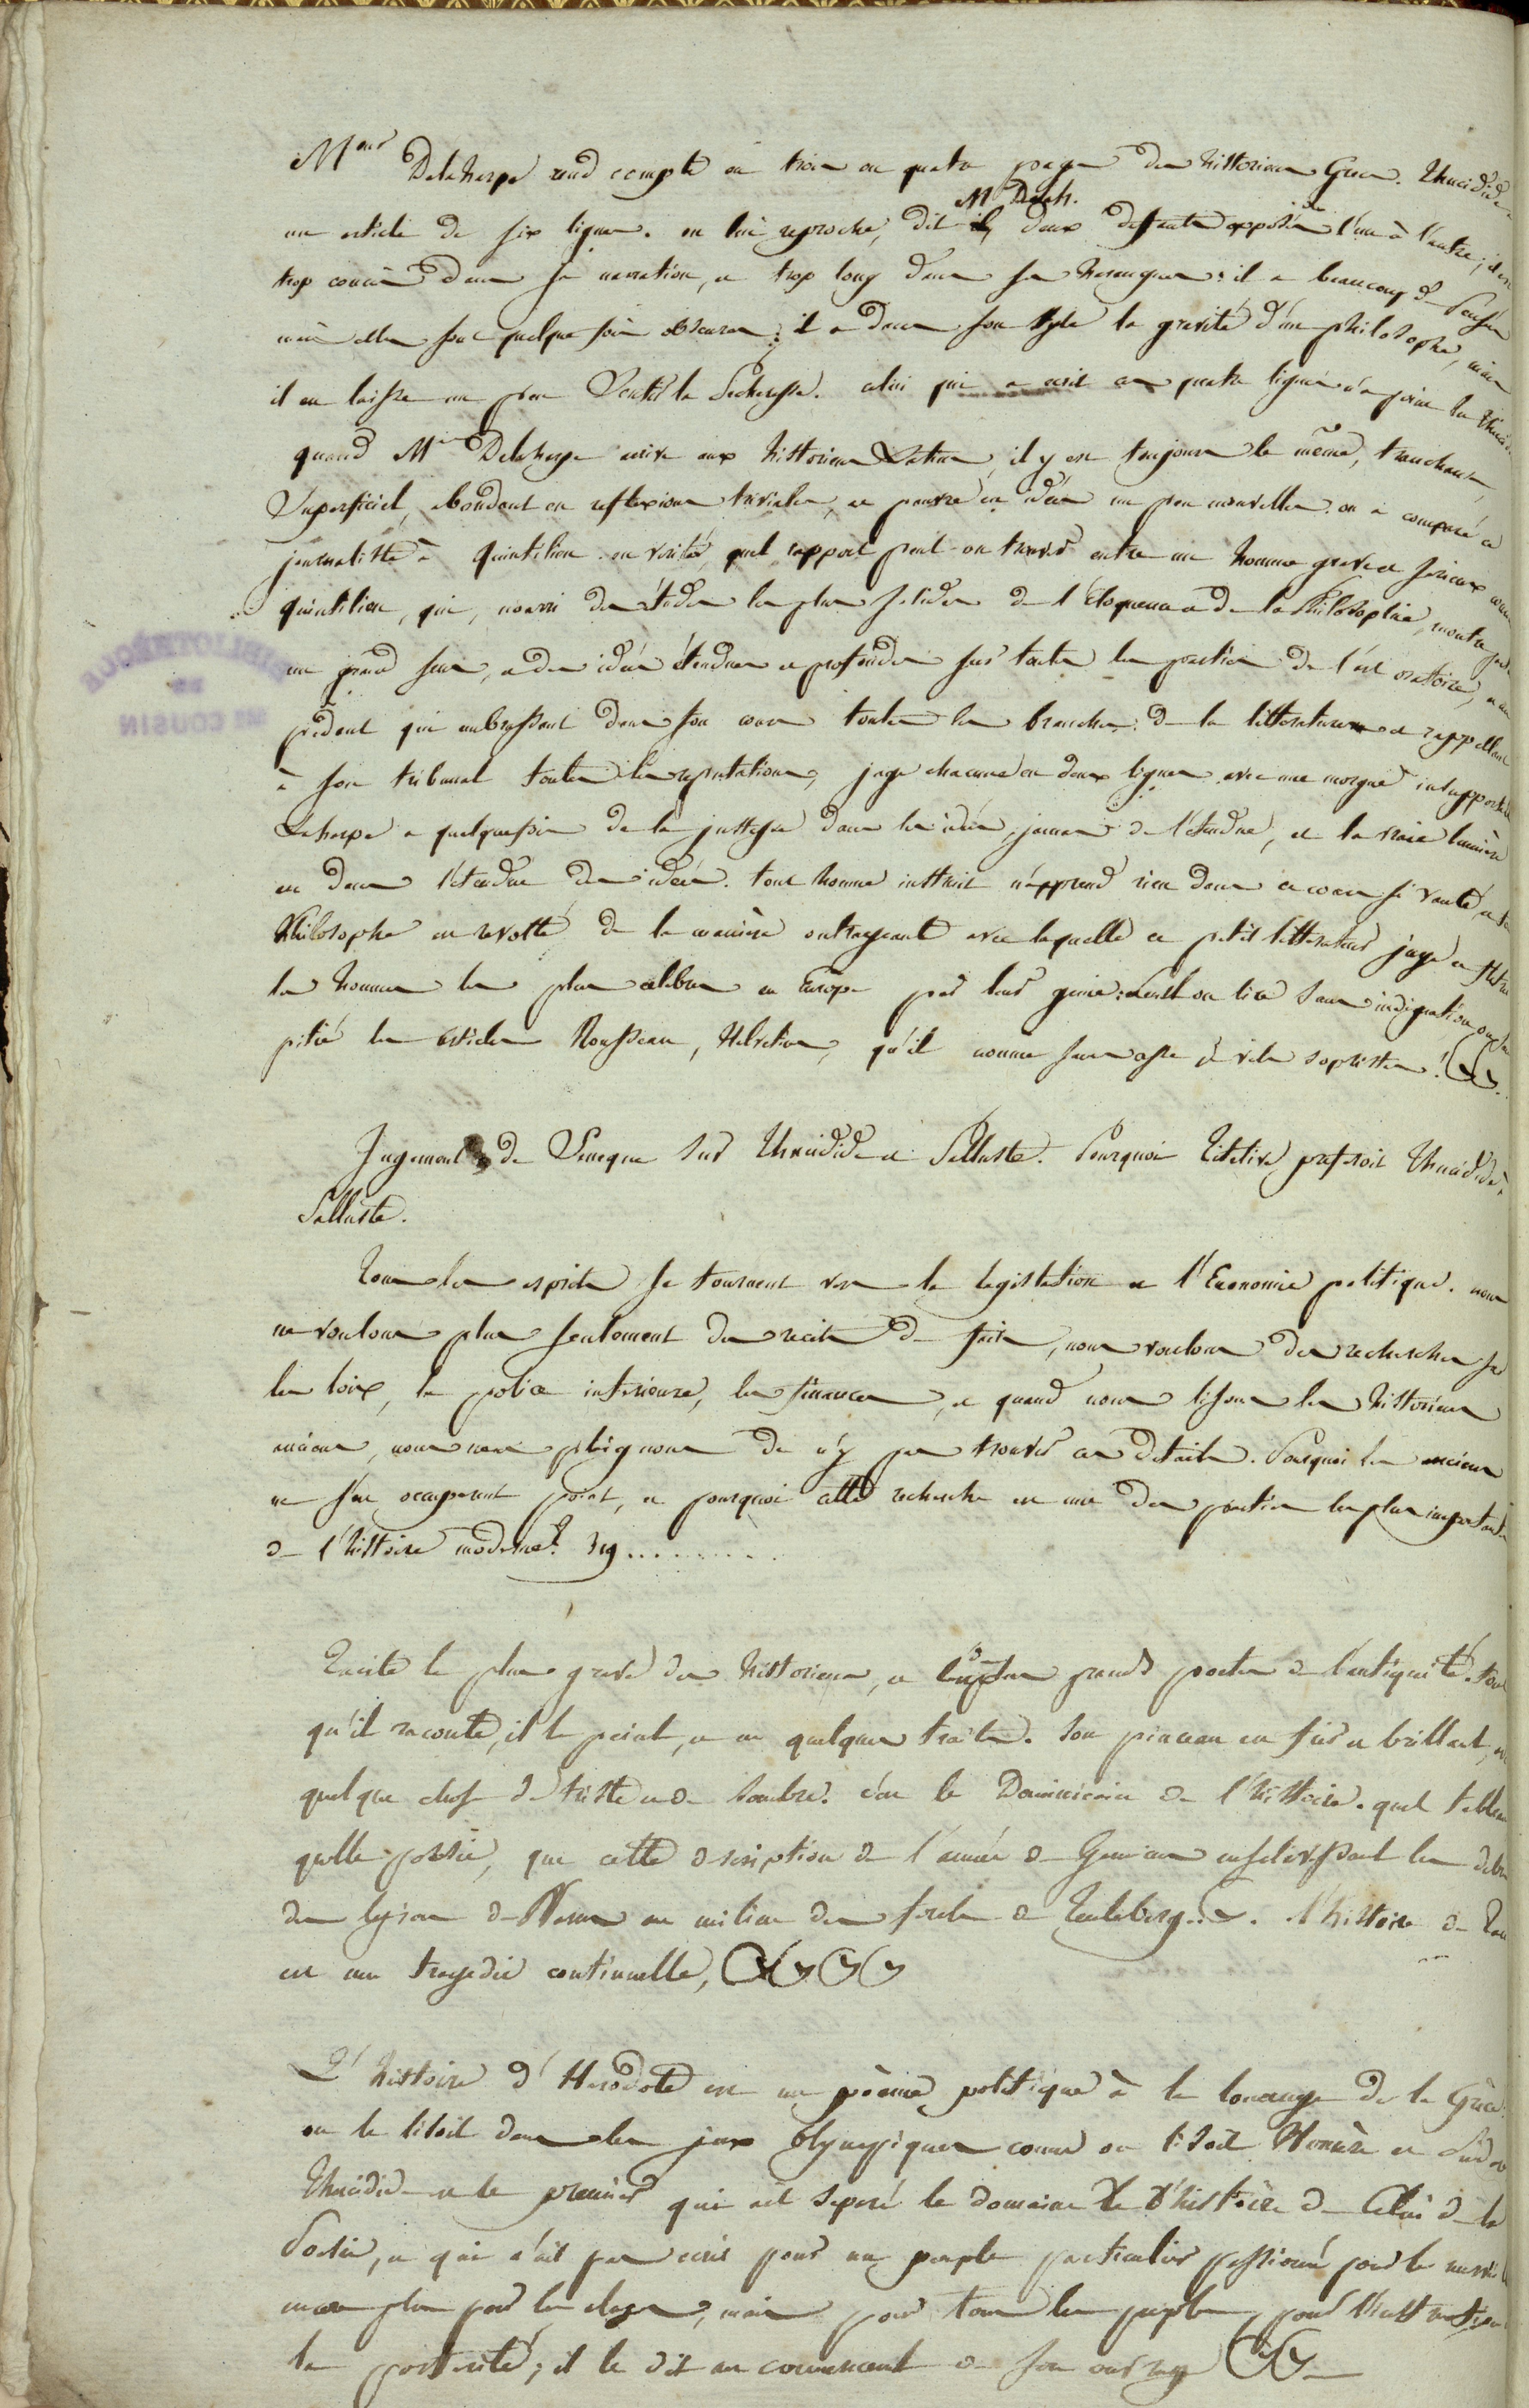 Mr Delaharpe rend compte en trois ou quatre pages des historiens Grecs. Thucidide a
un article de six lignes. on lui reproche, dit il, M. Delah. deux defauts opposés l'un à l'autre; il est
trop concis dans sa narration, et trop long dans ses harangues: il a beaucoup de pensées
mais elles sont quelque fois obscures: il a dans son style la gravité d'un philosophe, mais
il en laisse un peu sentir la secheresse. celui qui a ecrit ces quatre lignes n'a point lu Thucidide
quand Mr Delaharpe arrive aux historiens Latins, il y est toujours le même, tranchant,
superficiel, abondant en reflexions triviales, et pauvre en idées un peu nouvelles. on a comparé ce
journaliste à Quintilien. en verité, quel rapport peut on trouver entre un homme grave et serieux comme
quintilien, qui, nourri des études les plus solides de l'Eloquence et de la Philosophie, montre
un grand sens, et des idées étendues et profondes sur toutes les parties de l'art oratoire, et un
pedant qui embrassant dans son cours toutes les branches de la litterature et rappellant
à son tribunal toutes les reputations, juge chacune en deux lignes avec une morgue insupportable
Laharpe a quelquefois de la justesse dans les idées, jamais de l'étendue, et la vraie lumiere
est dans l'étendue des idées. tout homme instruit n'apprend rien dans ce cours si vanté, et tout
Philosophe est revolté de la maniere outrageante avec laquelle ce petit litterateur juge et fletrit
les hommes les plus celebres en Europe par leur genie: peut on lire sans indignation ou sans
pitié les articles Rousseau, Helvetius, qu'il nomme sans cesse de vils sophistes!
Jugement de Seneque sur Thucidide et Salluste. Pourquoi Titelive preferoit Thucidide à
Salluste.
Tous les esprits se tournent vers la legislation et l'Economie politique. nous
ne voulons plus seulement des recits de faits, nous voulons des recherches sur
les loix, la police interieure, les finances, et quand nous lisons les historiens
anciens, nous nous plaignons de n'y pas trouver ces details. Pourquoi les anciens
ne s'en occuperent point, et pourquoi cette recherche est une des parties les plus importantes
de l'histoire moderne?
Tacite le plus grave des historiens, et le plus grand poete de l'antiquité. tout
qu'il raconte, il le peint, et en quelques traits. son pinceau est sûr et brillant, et
quelque chose de triste et de sombre. c'est le Dominicain de l'histoire. quel tableau
quelle poesie, que cette description de l'armée de Germanicus ensevelissant les debris
des legions de Varus au milieu des forets de Teuteberg. l'histoire de Tacite
est une tragedie continuelle,
L'histoire d'Herodote est un poème politique à la louange de la Grèce.
on le lisoit dans les jeux Olympiques comme on lisoit Homère et Pindare
Thucidide est le premier qui ait separé le domaine de l'histoire de celui de la
Poesie, et qui n'ait pas ecrit pour un peuple particulier passionné pour le merveilleux
encore plus pour les eloges, mais pour tous les peuples, pour l'instruction
la posterité; il le dit au commencement de son ouvrage
BIBLIOTHÈQUE
DE
MR COUSIN